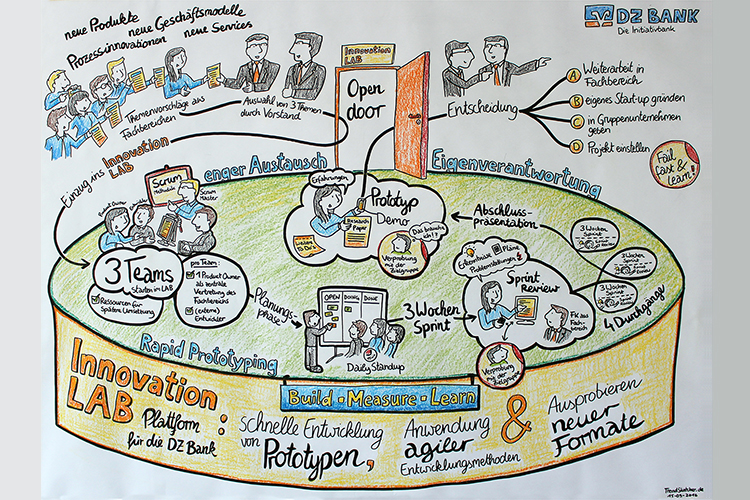 neue Produkte
neue Geschäftsmodelle
Prozessinnovationen
neue Services
DZ BANK
Die Initiativbank
Innovation
LAB
Open
door
Themenvorschläge aus
Fachbereichen
Auswahl von 3 Themen
durch Vorstand
Entscheidung
A Weiterarbeit in
Fachbereich
B eigenes Start-up gründen
C in Gruppenunternehmen
geben
D Projekt einstellen
Fail
fast &
learn!
Einzug ins
Innovation
LAB
enger Austausch
Eigenverantwortung
Scrum
Methodik
Scrum
Master
Erfahrungen
Research
Paper
Prototyp
Demo
Das brauche
ich!?
Verprobung
mit der
Zielgruppe
Abschluss-
präsentation
3 Wochen
Sprint
3 Wochen
Sprint
3 Wochen
Sprint
4 Durchgänge
3 Teams
starten im LAB
Ressourcen für
spätere Umsetzung
pro Team:
1 Product Owner
als zentrale
Vertretung des
Fachbereichs
(externe)
Entwickler
Planungs-
phase
OPEN DOING DONE
Daily Standup
3 Wochen
Sprint
Erkenntnisse
Pläne
Problemstellungen
Sprint
Review
Verprobung
mit der
Zielgruppe
Rapid Prototyping
Build - Measure - Learn
Innovation
LAB :
Plattform
für die DZ Bank
schnelle Entwicklung
von Prototypen,
Anwendung
agiler
Entwicklungsmethoden
&
Ausprobieren
neuer
Formate